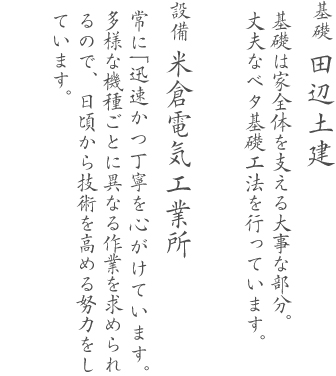 基礎 田辺土建
基礎は家全体を支える大事な部分。
丈夫なベタ基礎工法を行っています。
設備 米倉電気工業所
常に「迅速かつ丁寧を心がけています。
多様な機種ごとに異なる作業を求められ
るので、日頃から技術を高める努力をし
ています。